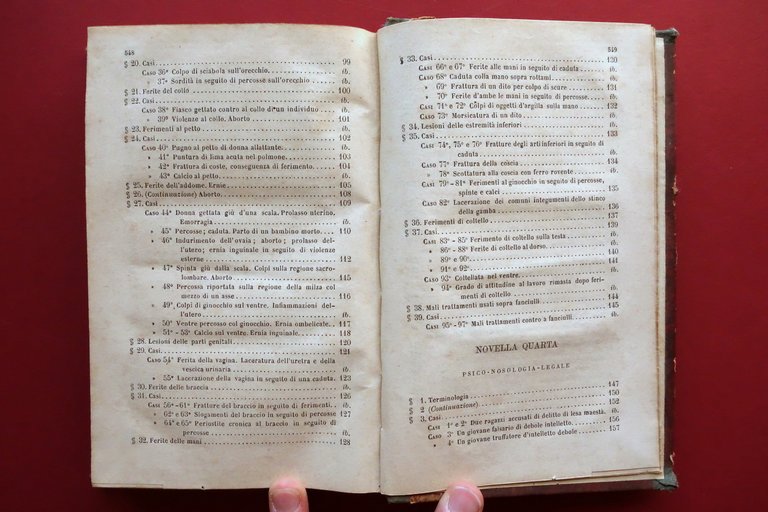 548
§ 20. Casi 99
Caso 36° Colpo di sciabola sull'orecchio ib.
» 37° Sordità in seguito di percosse sull'orecchio ib.
§ 21. Ferite del collo 100
§ 22. Casi ib.
Caso 38° Fiasco gettato contro al collo di un individuo ib.
» 39° Violenze al collo. Aborto 101
§ 23. Ferimenti al petto ib.
§ 24. Casi 102
Caso 40° Pugno al petto di donna allattante ib.
» 41° Puntura di lima acuta nel polmone 103
» 42° Frattura di coste, conseguenza di ferimento 104
» 43° Calcio al petto ib.
§ 25. Ferite dell'addome. Ernie 105
§ 26. (Continuazione) Aborto 108
§ 27. Casi 109
Caso 44° Donna gettata giù d'una scala. Prolasso uterino.
Emorragia ib.
» 45° Percosse; caduta. Parto di un bambino morto 110
» 46° Indurimento dell'ovaia; aborto; prolasso del-
l'utero; ernia inguinale in seguito di violenze
esterne 112
» 47° Spinta giù dalla scala. Colpi sulla regione sacro-
lombare. Aborto 115
» 48° Percossa riportata sulla regione della milza col
mezzo di un asse 116
» 49° Colpi di ginocchio sul ventre. Infiammazione del-
l'utero ib.
» 50° Ventre percosso col ginocchio. Ernia ombelicale 117
» 51°-53° Calcio sul ventre. Ernia inguinale 118
§ 28. Lesioni delle parti genitali 120
§ 29. Casi 121
Caso 54° Ferita della vagina. Laceratura dell'uretra e della
vescica urinaria ib.
» 55° Lacerazione della vagina in seguito di una caduta 123
§ 30. Ferite delle braccia ib.
§ 31. Casi 126
Casi 56°-61° Fratture del braccio in seguito di ferimenti ib.
» 62° e 63° Slogamenti del braccio in seguito di percosse 127
» 64° e 65° Periostite cronica al braccio in seguito di
percosse ib.
§ 32. Ferite delle mani 128
549
§ 33. Casi 130
Casi 66° e 67° Ferite alle mani in seguito di caduta ib.
Caso 68° Caduta colla mano sopra rottami ib.
» 69° Frattura di un dito per colpo di scure 131
» 70° Ferite d'ambe le mani in seguito di percosse ib.
Casi 71° e 72° Colpi di oggetti d'argilla sulla mano 132
Caso 73° Morsicatura di un dito ib.
§ 34. Lesioni delle estremità inferiori ib.
§ 35. Casi 133
Casi 74°, 75° e 76° Fratture degli arti inferiori in seguito di
caduta ib.
Caso 77° Frattura della coscia 134
» 78° Scottatura alla coscia con ferro rovente ib.
Casi 79°-81° Ferimenti al ginocchio in seguito di percosse,
spinte e calci 135
Caso 82° Lacerazione dei comuni integumenti dello stinco
della gamba 136
§ 36. Ferimenti di coltello 137
§ 37. Casi 139
Casi 83°-85° Ferimento di coltello sulla testa ib.
» 86°-88° Ferite di coltello al dorso 140
» 89° e 90° ib.
» 91° e 92° 141
Caso 93° Coltellata nel ventre ib.
» 94° Grado di attitudine al lavoro rimasta dopo feri-
menti di coltello ib.
§ 38. Mali trattamenti usati sopra fanciulli 144
§ 39. Casi 145
Casi 95°-97° Mali trattamenti contro a fanciulli ib.
NOVELLA QUARTA
PSICO-NOSOLOGIA-LEGALE
§ 1. Terminologia 147
§ 2 (Continuazione) 150
§ 3. Casi 152
Casi 1° e 2° Due ragazzi accusati di delitto di lesa maestà ib.
Caso 3° Un giovane falsario di debole intelletto 156
» 4° Un giovane truffatore d'intelletto debole 157